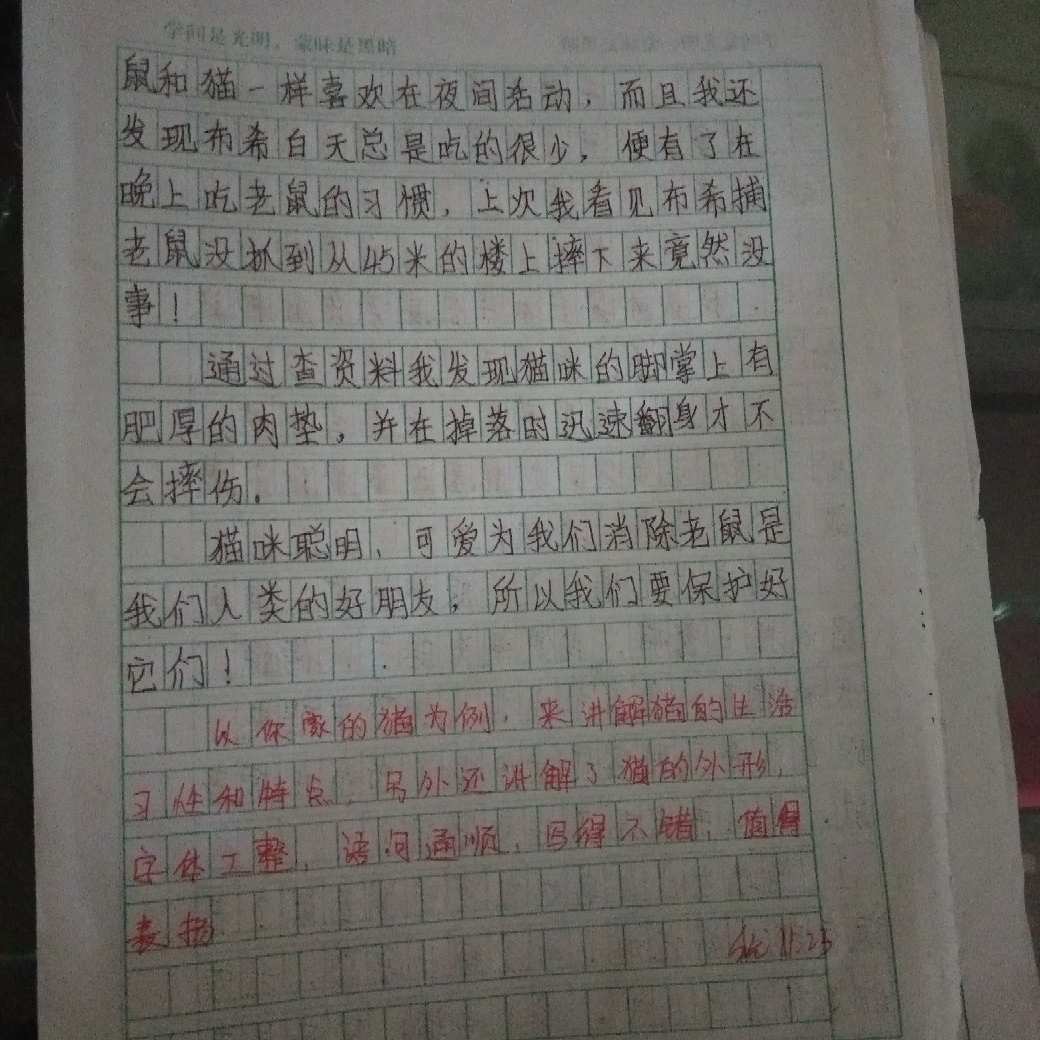 学问是光明，蒙昧是黑暗
鼠和猫一样喜欢在夜间活动，而且我还
发现布希白天总是吃的很少，便有了在
晚上吃老鼠的习惯，上次我看见布希捕
老鼠没抓到从45米的楼上摔下来竟然没
事！
通过查资料我发现猫咪的脚掌上有
肥厚的肉垫，并在掉落时迅速翻身才不
会摔伤。
猫咪聪明、可爱为我们消除老鼠是
我们人类的好朋友，所以我们要保护好
它们！
以你家的猫为例，来讲解猫的生活
习性和特点，另外还讲解了猫的外形，
字体工整，语句通顺，写得不错，值得
表扬
11.23